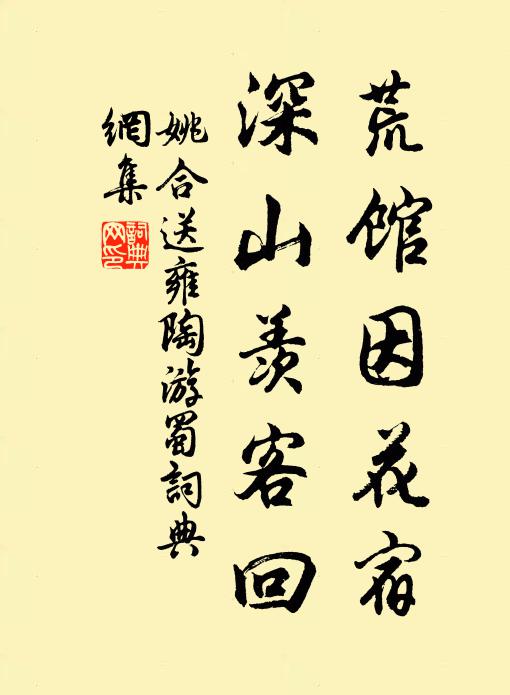 荒馆因花宿
深山羡客回
姚合送雍陶游蜀詞典
網集
詞典
网印